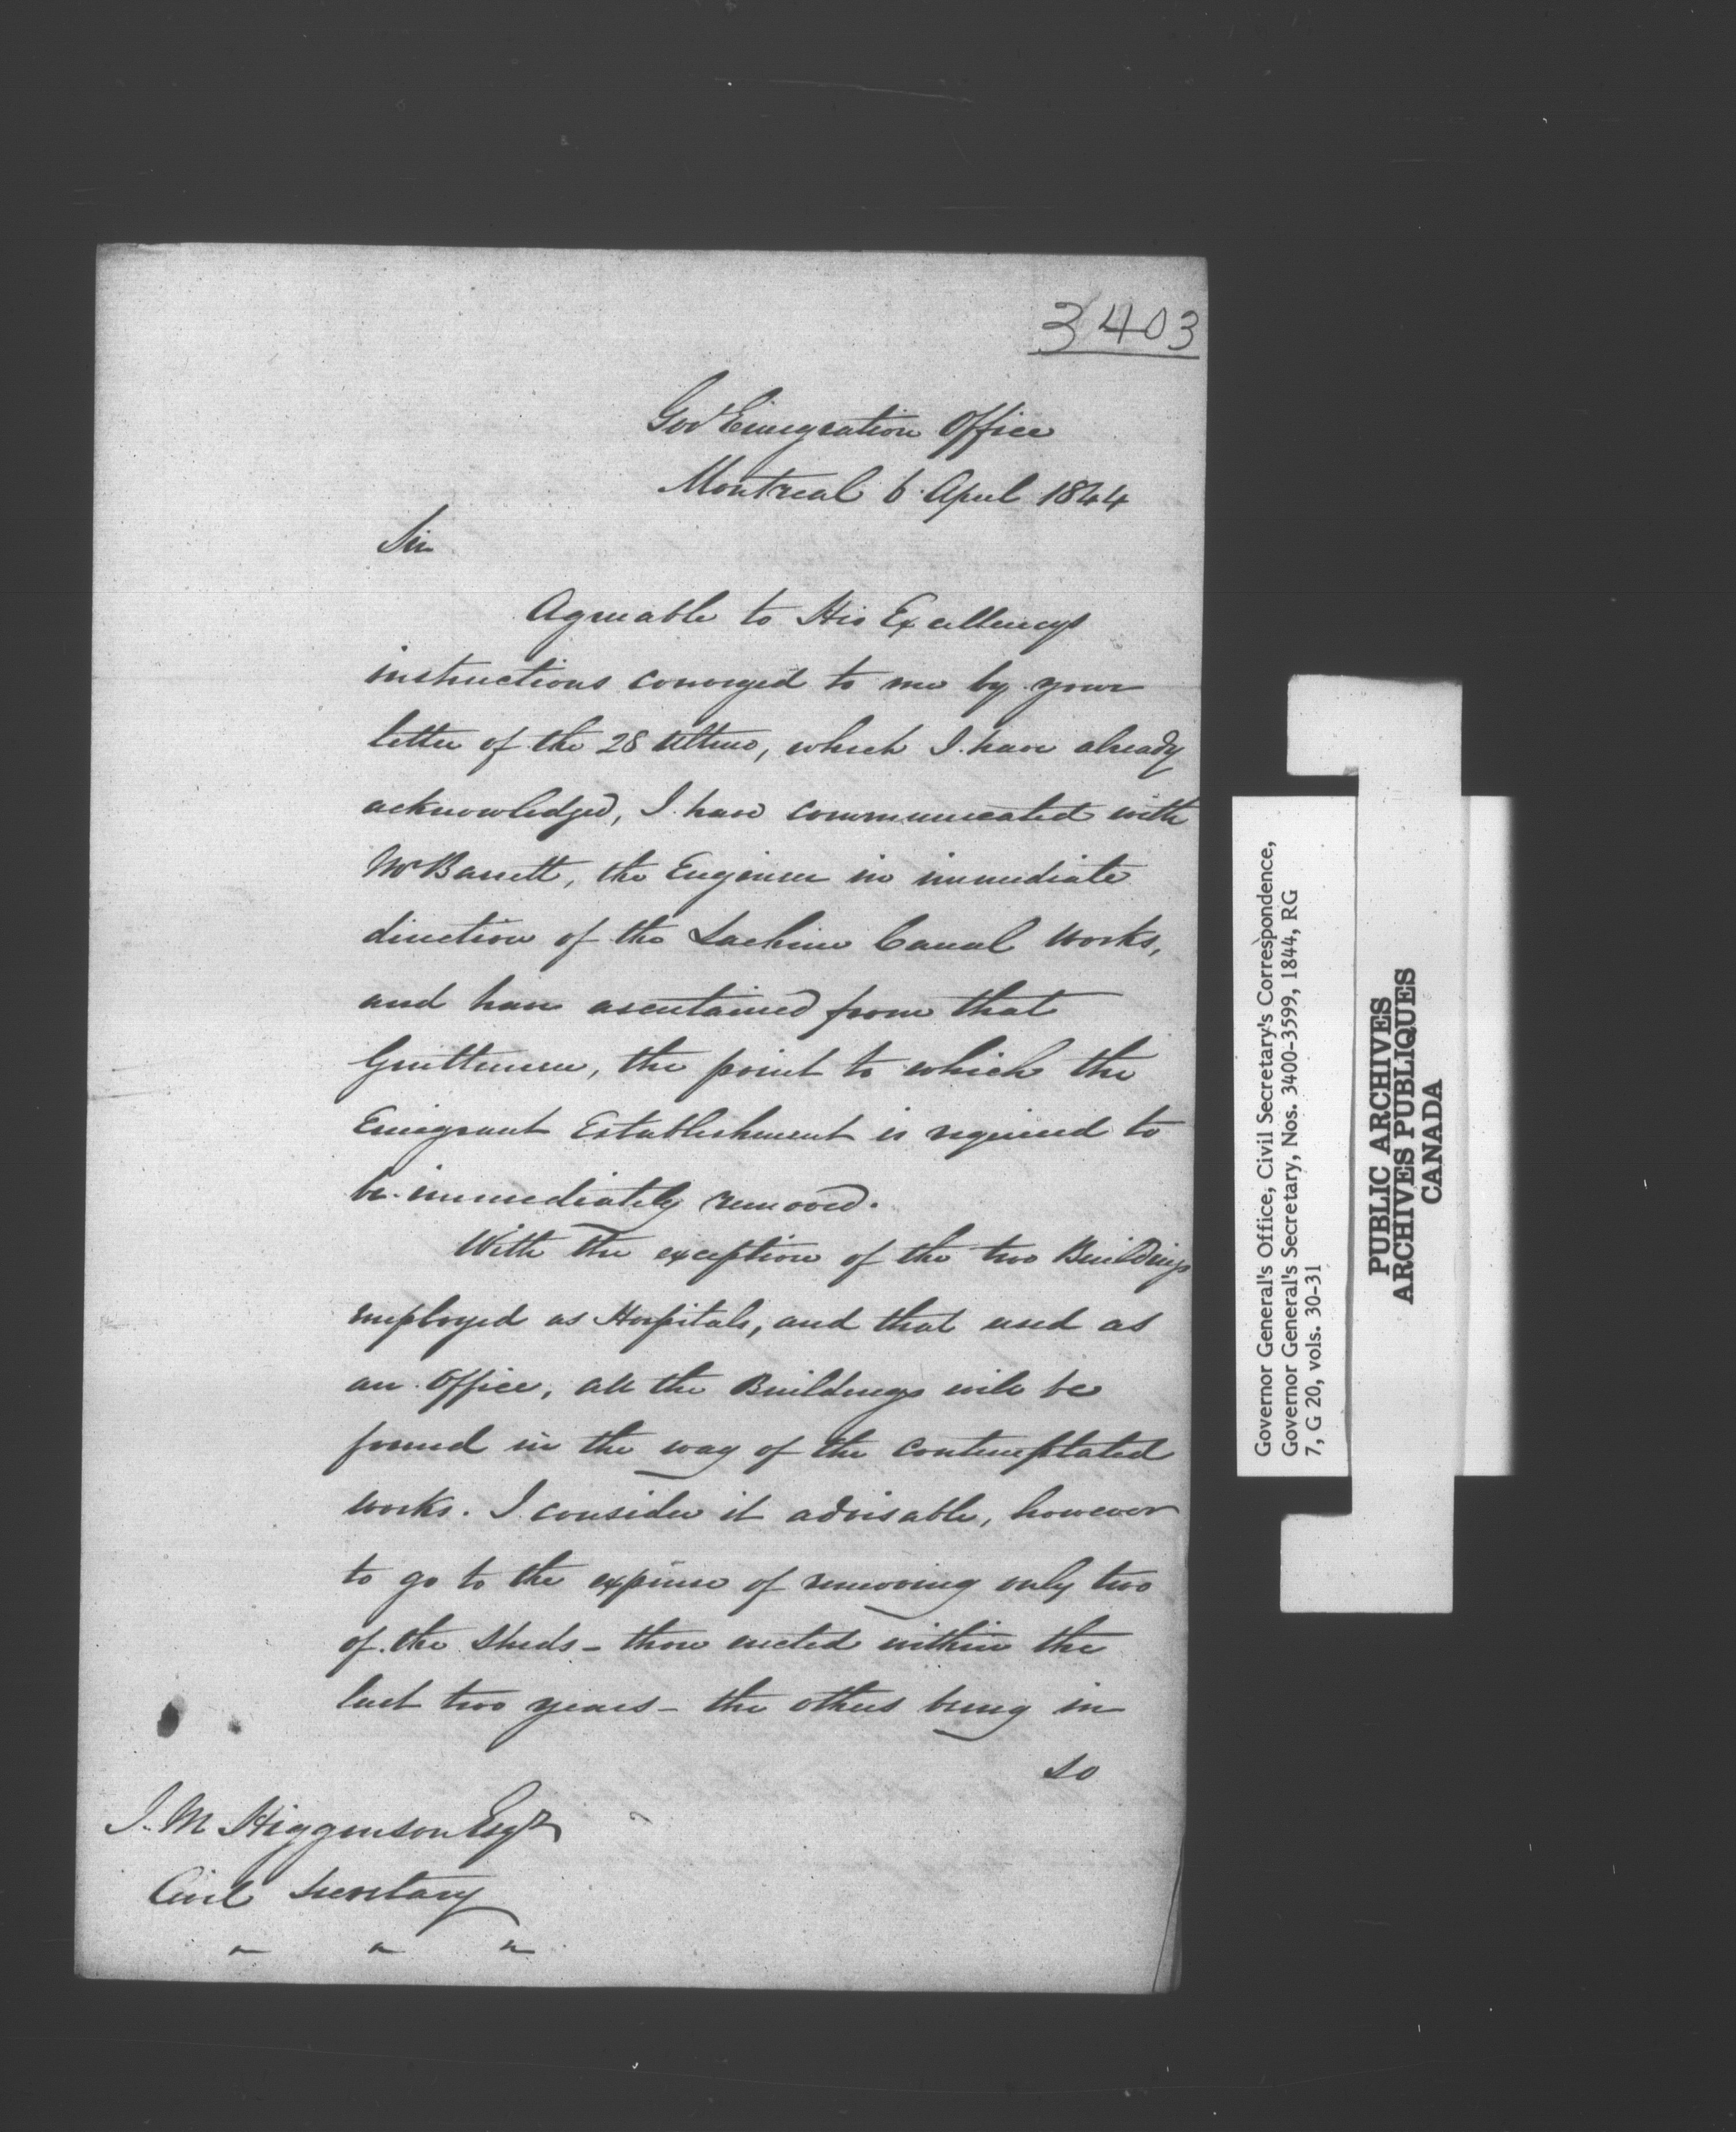 3403
Gov Emigration Office
Montreal 6 April 1844
Sir
Agreeable to His Excellencys
instructions conveyed to me by your
letter of the 28 Ultimo, which I have already
acknowledged, I have communicated with
Mr Barrett, the Engineer in immediate
direction of the Lachine Canal Works,
and have ascertained from that
Gentleman, the point to which the
Emigrant Establishment is required to
be immediately removed.
With the exception of the two Buildings
employed as Hospitals, and that used as
an Office, all the Buildings will be
found in the way of the contemplated
works. I consider it advisable, however
to go to the expense of removing only two
of the Sheds - those erected within the
last two years - the others being in
so
J. M Higginson Esqr
Civil Secretary
" " "
Governor General's Office, Civil Secretary's Correspondence,
Governor General's Secretary, Nos. 3400-3599, 1844, RG
7, G 20, vols. 30-31
PUBLIC ARCHIVES
ARCHIVES PUBLIQUES
CANADA